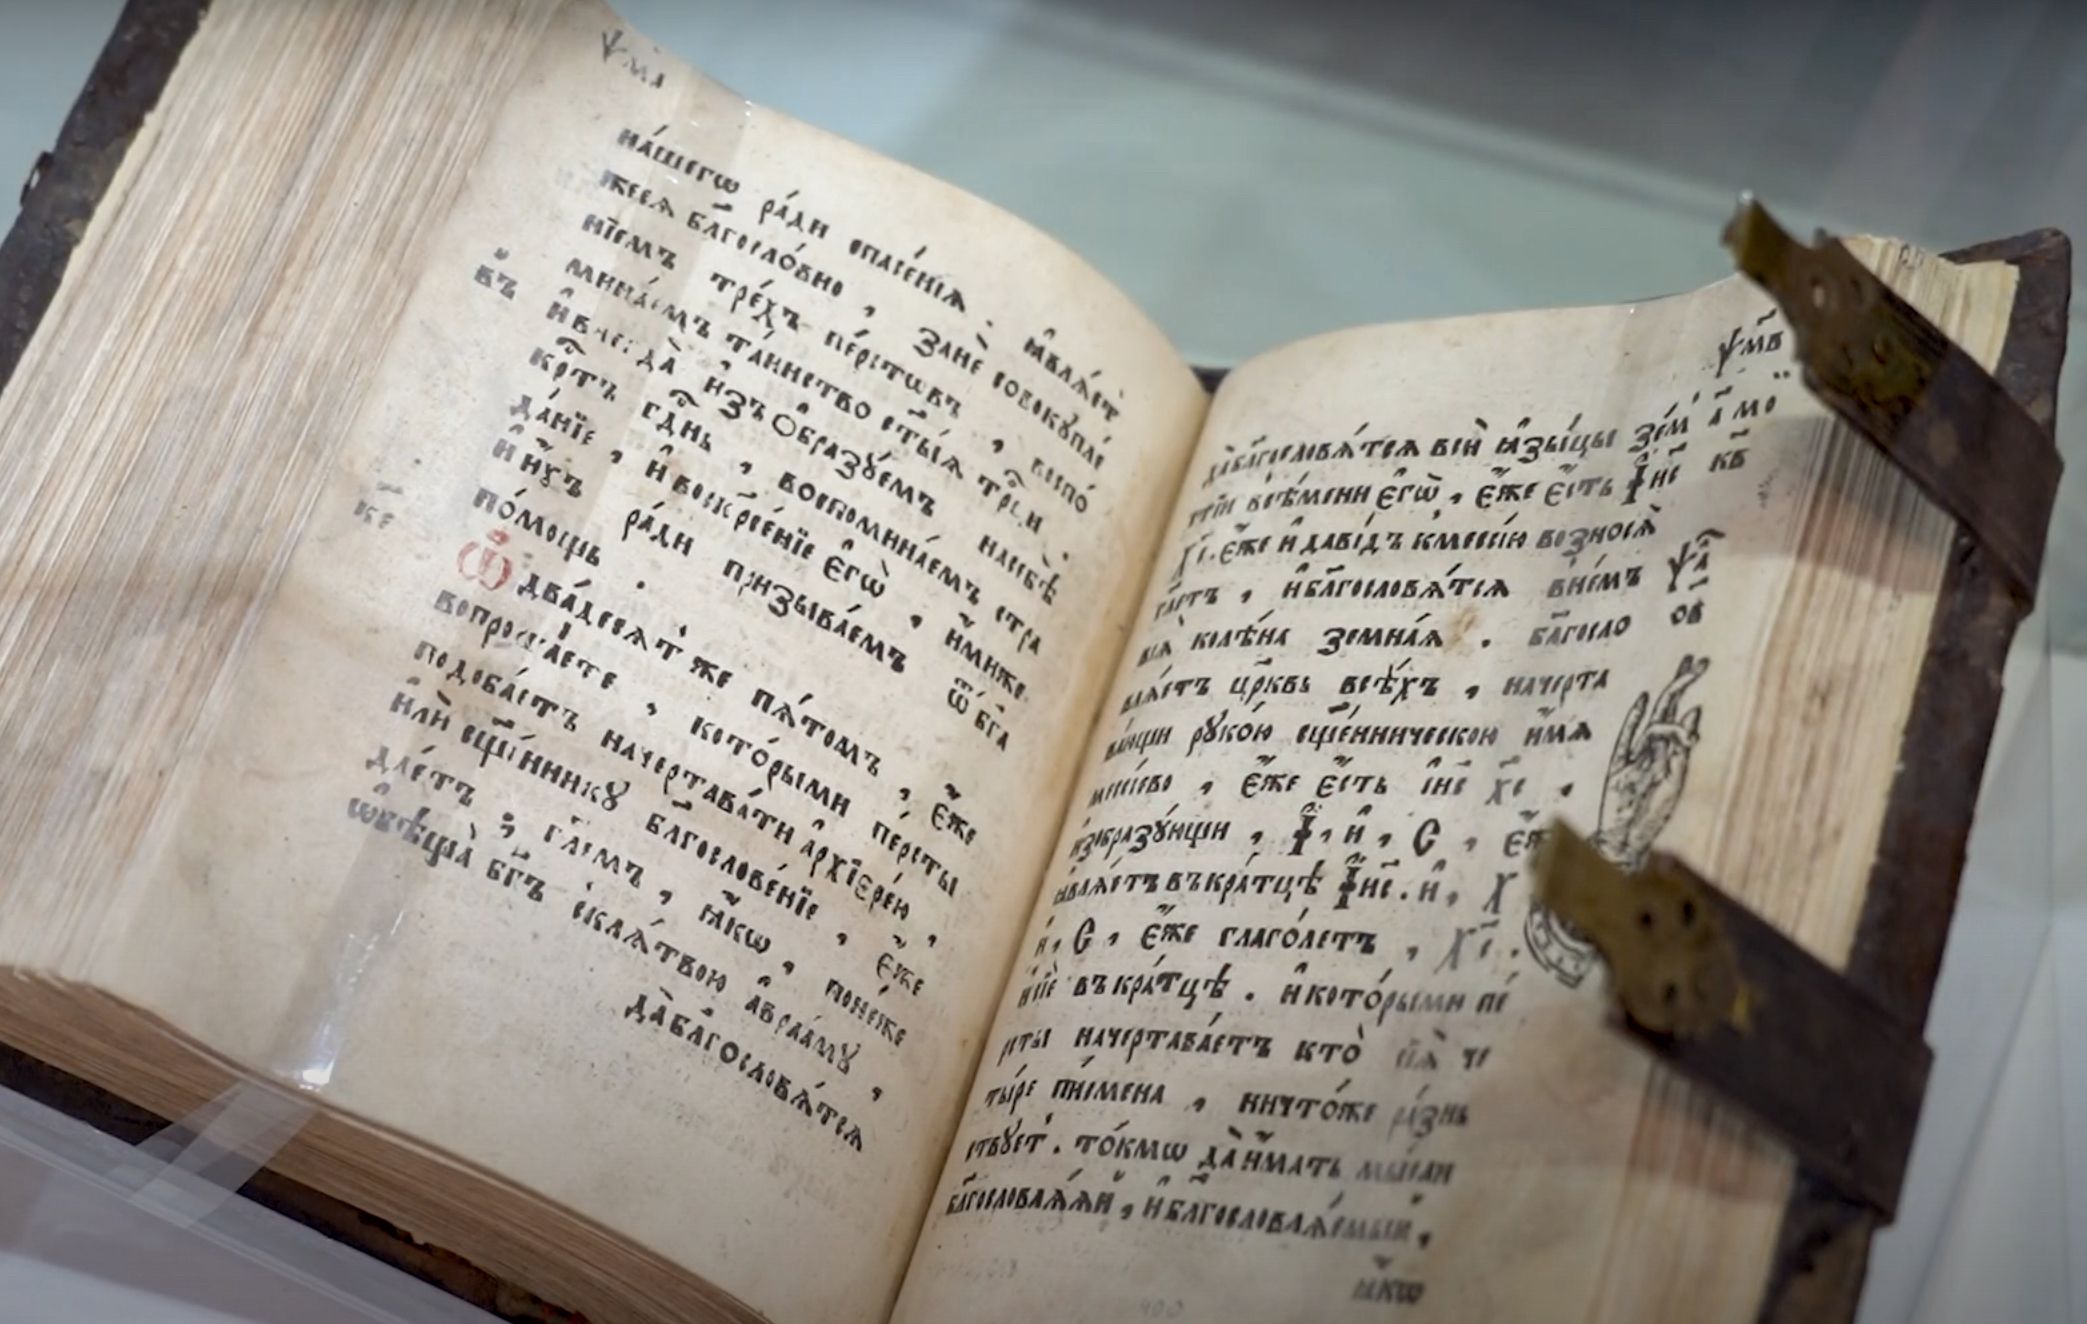 ѰМА
на́шегѡ ра́ди спасе́нїѧ . ꙗ҆влѧ́етъ
же сѧ бл҃госло́вно , занѐ совокꙋпле́
нїемъ тре́хъ пе́рстѡвъ , воспо
мина́емъ та́инство ст҃ы́ѧ трⷪ҇цы .
и҆ всегда̀ и҆з̾ѡбразꙋ́емъ на себѣ̀
въ
крⷭ҇тъ гдⷭ҇нь , воспомина́емъ стра
да́нїе , и҆ воскрⷭ҇е́нїе є҆гѡ̀ , и҆́миже
и҆ и҆́хъ ра́ди призыва́емъ ѿ бг҃а
по́мощь .
ке
Ѡ҆ два́десѧт же пѧ́томъ , є҆́же
вопроша́ете , кото́рыми пе́рсты
подоба́етъ начертава́ти а҆рхїере́ю ,
и҆лѝ сщ҃е́нникꙋ бл҃гослове́нїе , є҆́же
дае́тъ ; гл҃емъ , ꙗ҆́кѡ , поне́же
ѡ҆бѣща̀ бг҃ъ склѧ́твою а҆враа́мꙋ ,
да̀ бл҃гословѧ́тсѧ
ѰМВ
да̀ бл҃гословѧ́тсѧ всѝ ꙗ҆зы́цы зем
а мо
стїи в сѣ́мени є҆гѡ̀ , є҆́же є҆́сть І҆и҃съ
кв
Хс҃ . є҆́же и҆ даві́дъ к мессі́ю возносѧ̀
гл҃етъ , и҆ бл҃гословѧ́тсѧ в не́мъ
ѱа
всѧ̀ колѣ́на земна́ѧ . бл҃госло
ов
влѧ́етъ цр҃квь всѣ́хъ , начерта
ва́ющи рꙋко́ю сщ҃е́нническою и҆́мѧ
мессі́ево , є҆́же є҆́сть і҆и҃с хс҃ ,
и҆з̾ѡбразꙋ́ющи , І҆ , и҆ , С , є҆́же
ꙗ҆влѧ́етъ въ кра́тцѣ І҆и҃с . и҆ , Х
и҆ , С , є҆́же глаго́летъ , Хс҃ .
въ кра́тцѣ . и҆ кото́рыми пе́
рсты начертава́етъ кто̀ сїѧ̀ че
ты́ре пи́смена , ничто́же ра́знь
ствꙋет . то́кмѡ да̀ и҆́мать мы́сли
бл҃гословлѧ́ѧй , и҆ бл҃гословлѧ́емый ,
ꙗ҆́кѡ